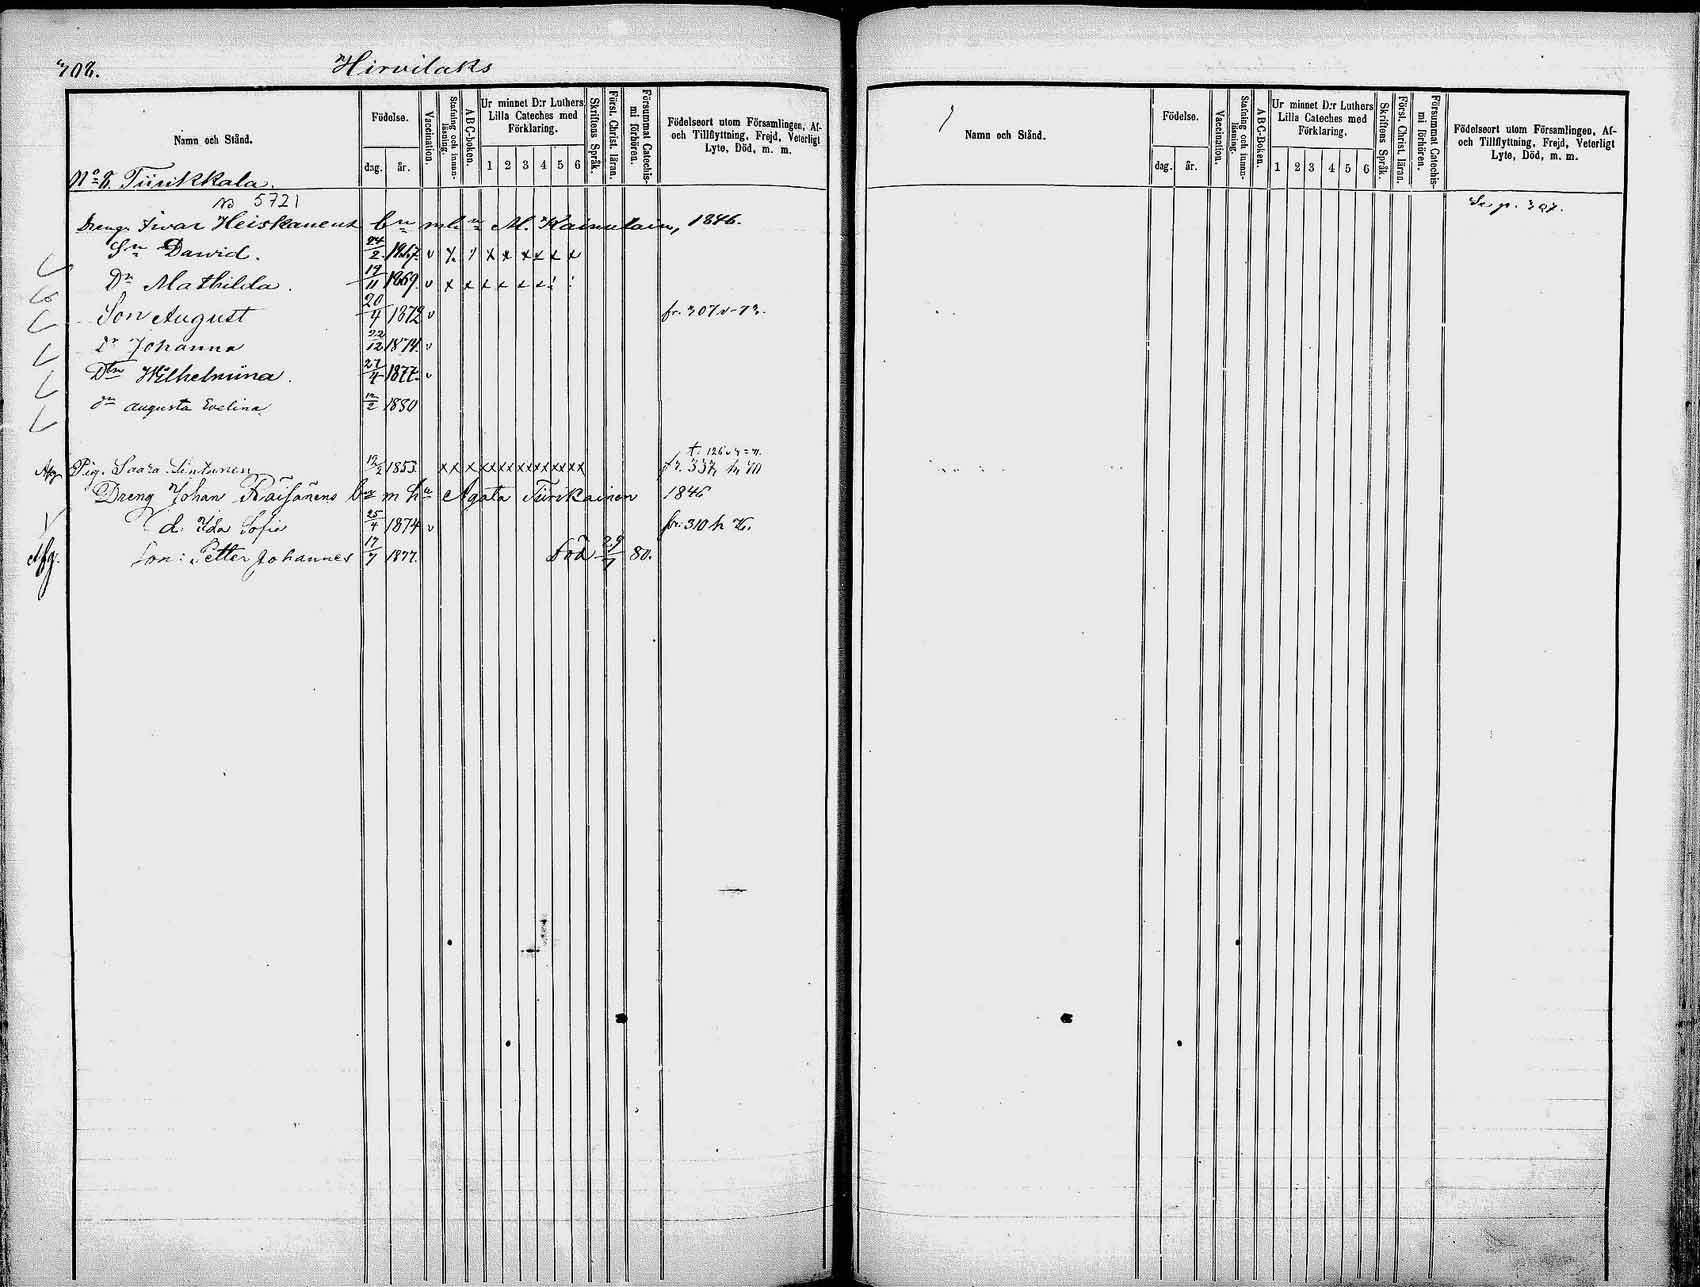 308. Hirvilaks
Namn och Stånd. Födelse. dag. år. Vaccination. Stafning och innan-läsning. A B C-boken. Ur minnet D:r Luthers Lilla Cateches med Förklaring. 1 2 3 4 5 6 Skriftens Språk. Först. Christ. läran. Försummat Catechis-mi förhören. Födelseort utom Församlingen, Af- och Tillflyttning, Frejd, Veterligt Lyte, Död, m. m.
No 8. Tiirikkala.
No 5721
Dreng. Ivar Heiskanens bn m h n M. Kainulain, 1846.
Sn Dawid. 24/2 1867. v x x x x x x x x
Dn Mathilda. 19/11 1869. v x x x x x x
Son August 20/4 1872 v fr. 307 v -73.
Dr Johanna 22/12 1874. v
Dtn Wilhelmina. 27/4 1877. v
Dn Augusta Evelina. 12/2 1880
t. 126
Afg Pig. Saara 12/2 1853. x x x x x x x x x x x x x fr. 337,
Dreng Johan Räisänens bn m hu Agata Tiirikainen 1846
d. Ida Sofie 25/4 1874 v fr. 310
Afg. Son: Petter Johannes 17/7 1877. Död 29/7 80.
Namn och Stånd. Födelse. dag. år. Vaccination. Stafning och innan-läsning. A B C-boken. Ur minnet D:r Luthers Lilla Cateches med Förklaring. 1 2 3 4 5 6 Skriftens Språk. Först. Christ. läran. Försummat Catechis-mi förhören. Födelseort utom Församlingen, Af- och Tillflyttning, Frejd, Veterligt Lyte, Död, m. m.
Se p. 307.